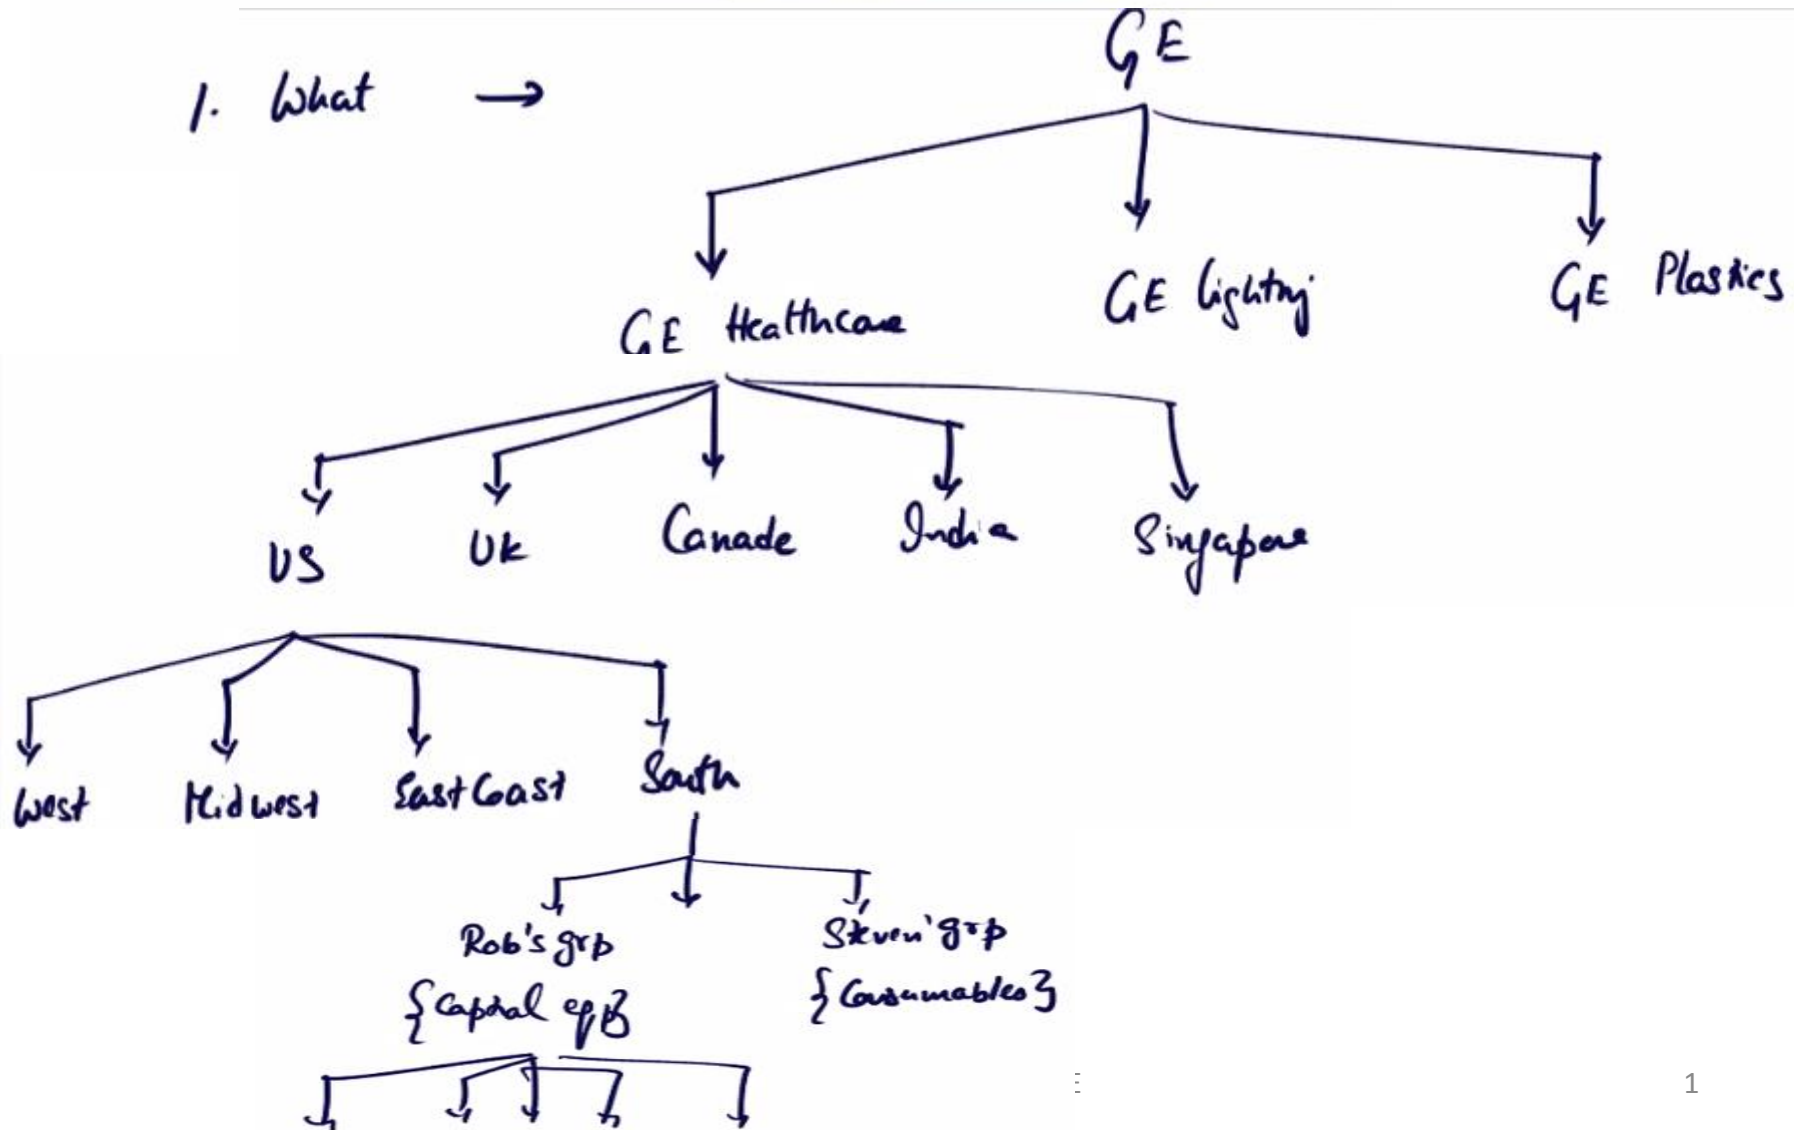 GE
1. What →
GE Healthcare
GE Lighting
GE Plastics
US
UK
Canade
India
Singapore
West
Midwest
East Coast
South
Rob's grp
Steven' grp
{Capital eqp}
{Consumables}
1